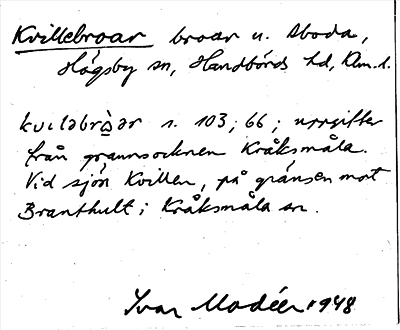 Kvillebroar broar u. Aboda,
Högsby sn, Handbörds hd, Klm. l.
kvıləbròar s. 103; 66; uppgifter
från grannsocknen Kråksmåla.
Vid sjön Kvillen, på gränsen mot
Branthult i Kråksmåla sn.
Ivar Modéer 1948